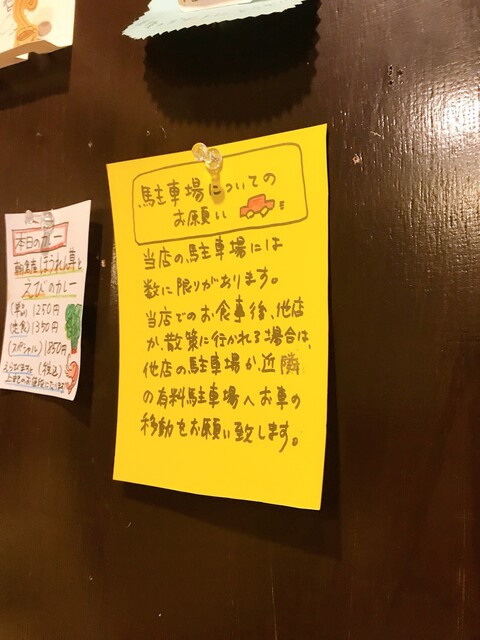 駐車場についての
お願い
当店の駐車場には
数に限りがあります。
当店でのお食事後、他店
か、散策に行かれる場合は、
他店の駐車場か、近隣
の有料駐車場へお車の
移動をお願い致します。
本日のカレー
ほうれん草と
えびのカレー
(単品) 1250円
(定食) 1350円
(スペシャル) 1850円
(税込)